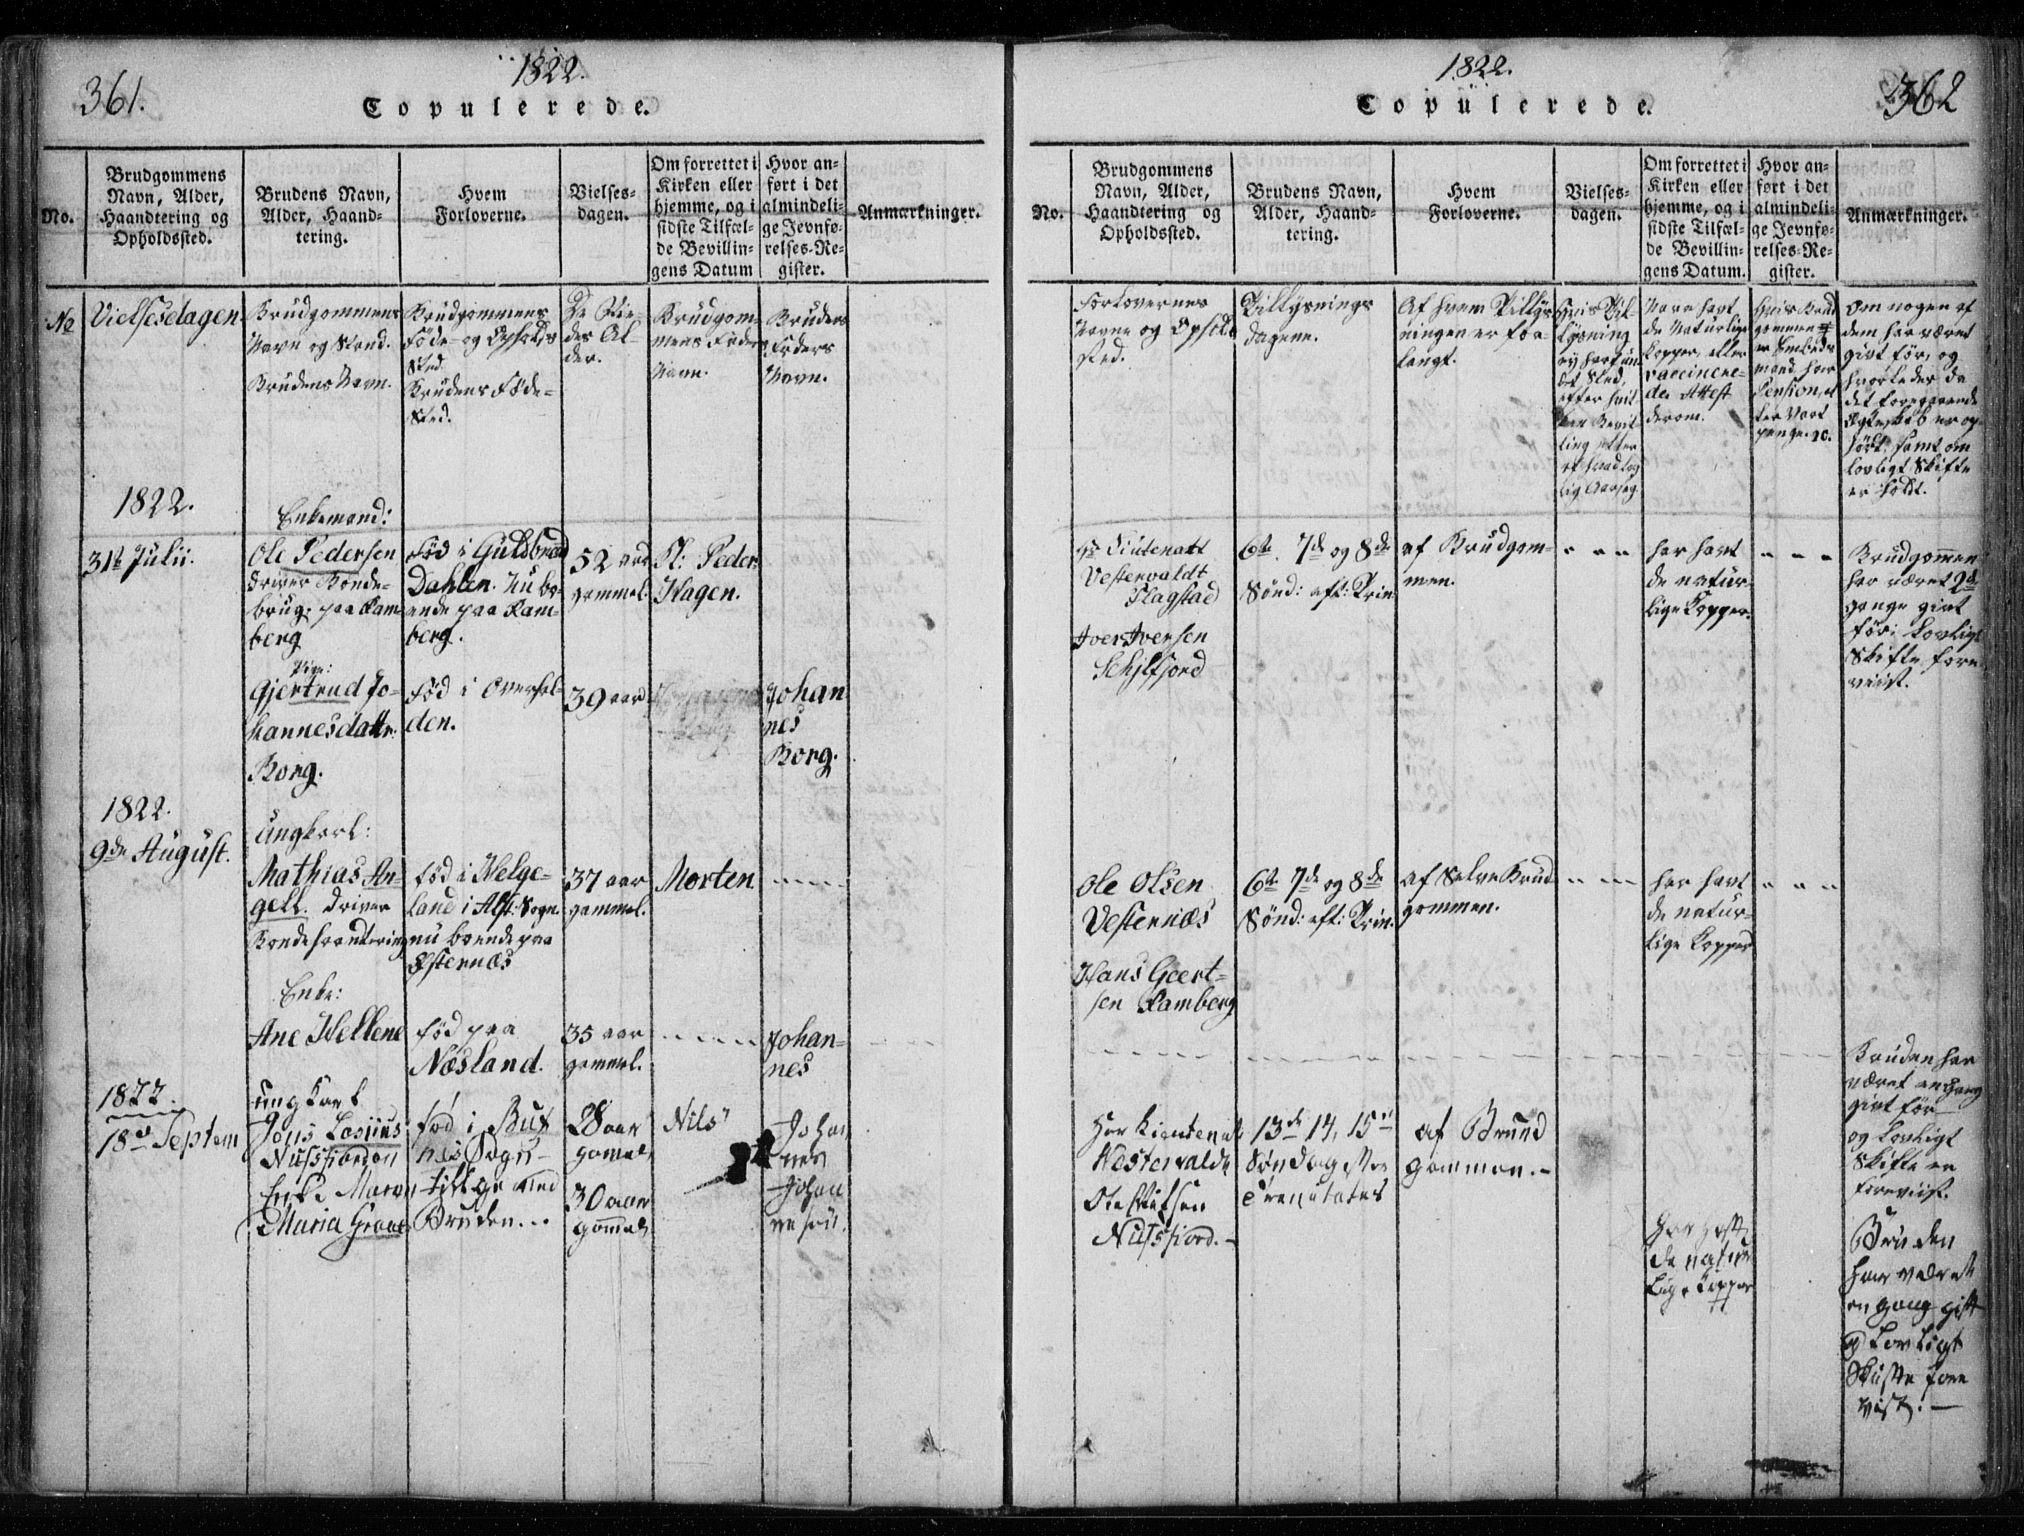 361.
1822.
Copulerede.
No.
Brudgommens
Navn, Alder,
Haandtering og
Opholdssted.
Brudens Navn,
Alder, Haand-
tering.
Hvem
Forloverne.
Vielses-
dagen.
Om forrettet i
Kirken eller
hjemme, og i
sidste Tilfæl-
de Bevillin-
gens Datum
Hvor an-
ført i det
almindeli-
ge Jevnfø-
relses-Re-
gister.
Anmærkninger.
No
Vielsesdagen.
Brudgommens
Navn og Stand.
Brudens Navn.
Brudgommens
Føde- og Opholds
Sted.
Brudens Føde-
Sted.
De Vie-
des Al-
der.
Brudgom-
mens Faders
Navn.
Brudens
Faders
Navn.
1822.
31te Julii.
Enkemand:
Ole Pedersen
driver Bonde-
brug: paa Ram
berg
Pige:
Gjertrud Jo-
hannesdattr:
Borg.
fød i Guldbrand
Dahlen. Nu bo-
ende paa Ram-
berg.
fød i Overhal-
den.
52 aar
gammel.
39 aar
P: Peder
Hagen.
Johan
nes
Borg.
1822.
9de August.
Ungkarl:
Mathias An-
gell. driver
Bondehaandtering
Enke:
Ane Hellene
fød i Helge-
land i Alst: Sogn
nu boende paa
Østernæs
fød paa
Næsland.
37 aar
gammel.
35 aar
gammel.
Morten
-----
-----
Johan-
nes
1822.
18de Septem
ung Karl
Jens Lasius
Nussfiorden
Enke Maren
Maria Graae
fød i Bux
nes Sogn-
tillige med
Bruden...
28 aar
gamel
30 aar
gamel
Nils
Johan
nes
Johan
nesen.
1822.
Copulerede.
362
No.
Brudgommens
Navn, Alder,
Haandtering og
Opholdssted.
Brudens Navn,
Alder, Haand-
tering.
Hvem
Forloverne.
Vielses-
dagen.
Om forrettet i
Kirken eller
hjemme, og i
sidste Tilfæl-
de Bevillin-
gens Datum.
Hvor an-
ført i det
almindeli-
ge Jevnfø-
relses-Re-
gister.
Anmærkninger.
Forlovernes
Navne og Opholds
sted.
Tillysnings
dagene.
Af hvem Tillys
ningen er for-
langt.
Hvis Til-
lysning
ej har fun
det Sted,
efter hvil
ken Bevil
ling eller
af hvad lov
lig Aarsag.
Have havt
de naturlige
Kopper, eller
vaccinere-
de Attest
derom.
Hvis Brud
gommen
er Embeds
mand, har
Pension,
Om nogen af
dem har været
givt før, og
hvorledes da
det foregaaende
Ægteskab er op-
hørt: samt om
lovligt Skifte
er holdt.
Hr Lieutenatt
Vestervaldt
Flagstad
Iver Iversen
Schjelfjord
6te 7de og 8de
Sønd: eft: Trin
af Brudgom-
men.
- - -
har havt
de natur-
lige Kopper.
- - -
Brudgommen
har været 2de
gange givt
før; Lovligt
Skifte fore
viist.
Ole Olsen
Vesternæs
Hans Geert-
sen Ramberg
6te 7de og 8de
Sønd: eft: Trin.
af Selve Brud
gommen.
- - -
har havt
de natur-
lige Kopper
- - -
Bruden har
været en gang
givt før
og Lovligt
Skifte er
foreviist.
Herr Lieutenat
Westervaldt
Ole Nilsen
Nussfiord.-
13de 14, 15de
Søndag efter
Trenitates
af Brud
gommen.-
Har haft
de natur
lige Kopper
Bruden
har været
en gang gift
og Lovligt
Skifte fore
vist.-